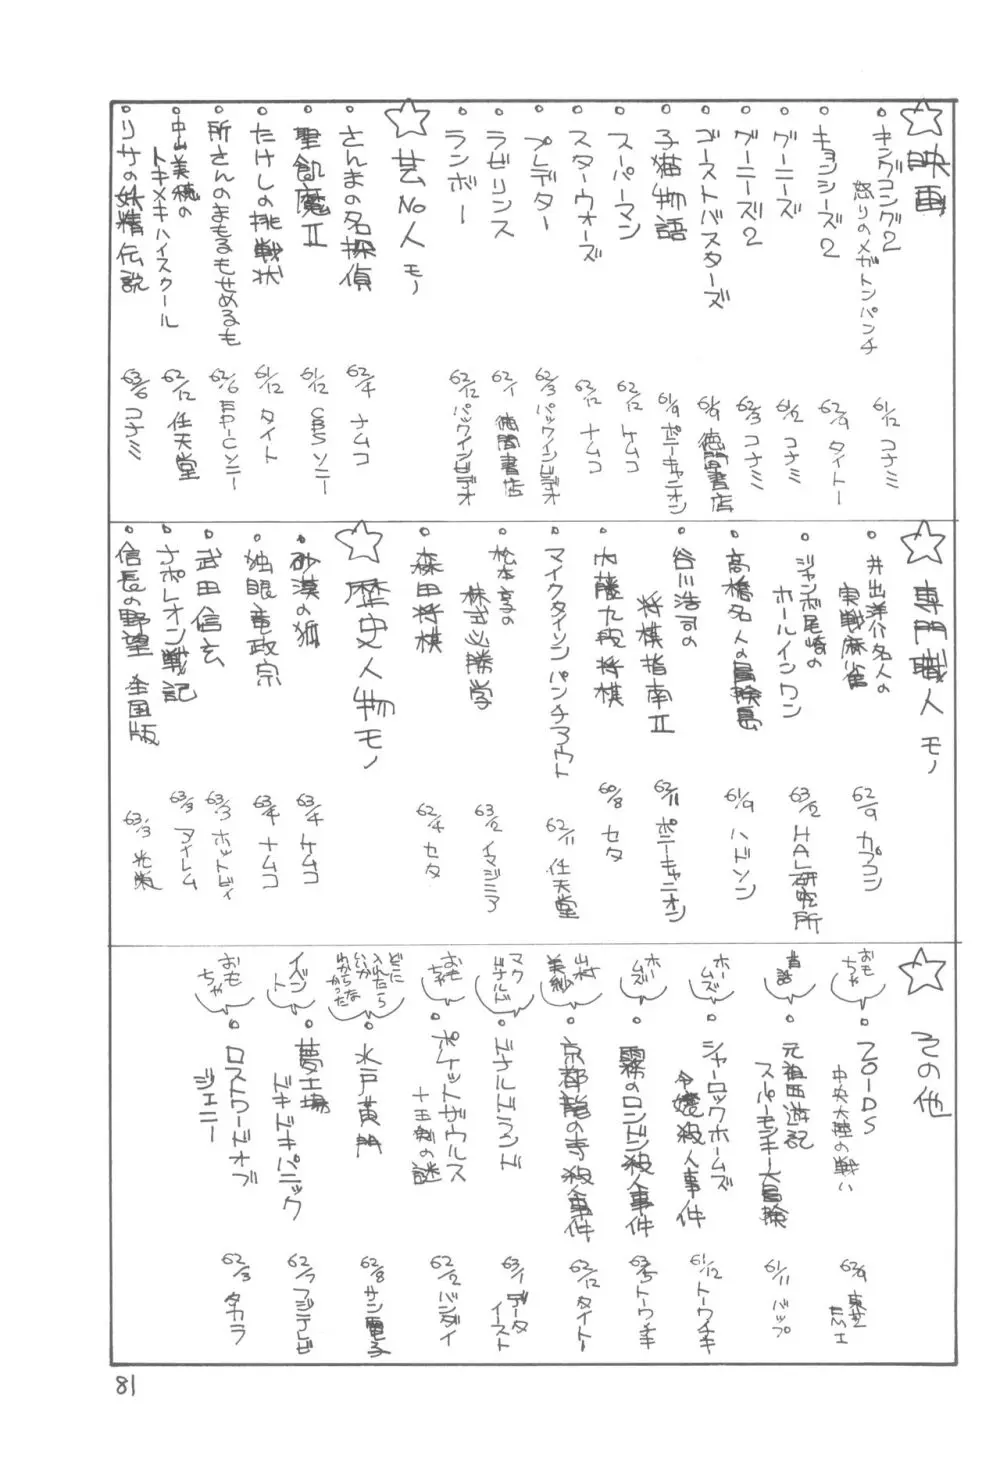 ☆映画
キングコング2
怒りのメガトンパンチ
61/12 コナミ
キョンシーズ2
62/9 タイトー
グーニーズ
61/2 コナミ
グーニーズ2
62/3 コナミ
ゴーストバスターズ
61/9 徳間書店
子猫物語
61/9 ポニーキャニオン
スーパーマン
62/12 ケムコ
スターウォーズ
62/12 ナムコ
プレデター
62/3 パックインビデオ
ラビリンス
62/1 徳間書店
ランボー
62/12 パックインビデオ
☆芸NO人モノ
さんまの名探偵
62/4 ナムコ
聖飢魔II
61/12 CBSソニー
たけしの挑戦状
61/12 タイト
所さんのまもるもせめるも
62/6 EPICソニー
中山美穂の
トキメキハイスクール
62/12 任天堂
リサの妖精伝説
63/6 コナミ
☆専門職人モノ
井出洋介名人の
実戦麻雀
62/9 カプコン
ジャンボ尾崎の
ホールインワン
63/2 HAL研究所
高橋名人の冒険島
61/9 ハドソン
谷川浩司の
将棋指南II
62/11 ポニーキャニオン
内藤九段将棋
60/8 セタ
マイクタイソンパンチアウト
62/11 任天堂
松本亨の
株式必勝学
63/2 イマジニア
森田将棋
62/4 セタ
☆歴史人物モノ
砂漠の狐
63/4 ケムコ
独眼竜政宗
63/4 ナムコ
武田信玄
63/3 ホットビィ
ナポレオン戦記
63/3 アイレム
信長の野望 全国版
63/3 光栄
☆その他
おもちゃ
ZOIDS
中央大陸の戦い
62/9 東芝EMI
昔話
元祖西遊記
スーパーモンキー大冒険
61/11 バップ
ホームズ
シャーロックホームズ
令嬢殺人事件
61/12 トーワチキ
ホームズ
霧のロンドン殺人事件
63/5 トーワチキ
山村美紗
京都龍の寺殺人事件
62/12 タイトー
マクドナルド
ドナルドランド
63/1 データイースト
おもちゃ
ポケットザウルス
十王剣の謎
62/2 バンダイ
どこに入れたらいいかわからなかった
水戸黄門
62/8 サン電子
イベント
夢工場
ドキドキパニック
62/7 フジテレビ
おもちゃ
ロストワードオブ
ジェニー
62/3 タカラ
81